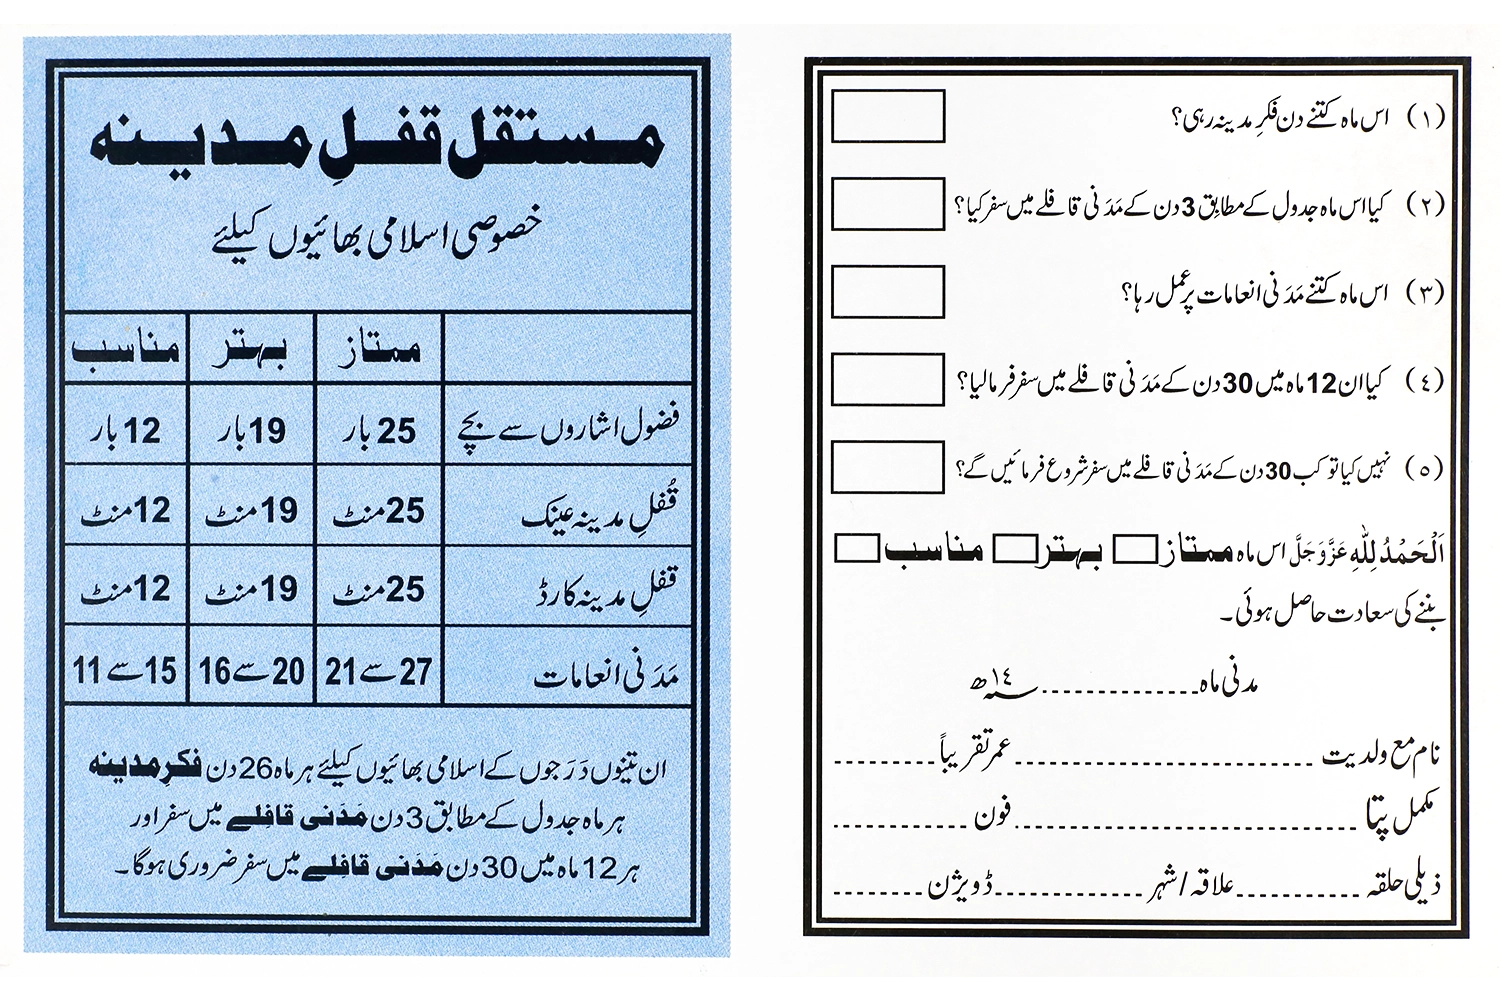 مستقل قفلِ مدینہ
خصوصی اسلامی بھائیوں کیلئے
ممتاز بہتر مناسب
فضول اشاروں سے بچے 25 بار 19 بار 12 بار
قُفلِ مدینہ عینک 25 منٹ 19 منٹ 12 منٹ
قفلِ مدینہ کارڈ 25 منٹ 19 منٹ 12 منٹ
مَدَنی انعامات 27 سے 21 20 سے 16 15 سے 11
ان تینوں دَرَجوں کے اسلامی بھائیوں کیلئے ہر ماہ 26 دن فکرِ مدینہ
ہر ماہ جدول کے مطابق 3 دن مَدَنی قافِلے میں سفر اور
ہر 12 ماہ میں 30 دن مَدَنی قافِلے میں سفر ضروری ہوگا۔
(۱) اس ماہ کتنے دن فکرِ مدینہ رہی؟
(۲) کیا اس ماہ جدول کے مطابق 3 دن کے مَدَنی قافلے میں سفر کیا؟
(۳) اس ماہ کتنے مَدَنی انعامات پر عمل رہا؟
(٤) کیا ان 12 ماہ میں 30 دن کے مَدَنی قافلے میں سفر فرمالیا؟
(٥) نہیں کیا تو کب 30 دن کے مَدَنی قافلے میں سفر شروع فرمائیں گے؟
اَلْحَمْدُ لِلّٰہِ عَزَّوَجَلَّ اس ماہ ممتاز بہتر مناسب
بننے کی سعادت حاصل ہوئی۔
مدنی ماہ ............... سنہ ۱٤ھ
نام مع ولدیت ............... عمر تقریباً ...............
مکمل پتا ............... فون ...............
ذیلی حلقہ ............... علاقہ/شہر ............... ڈویژن ...............